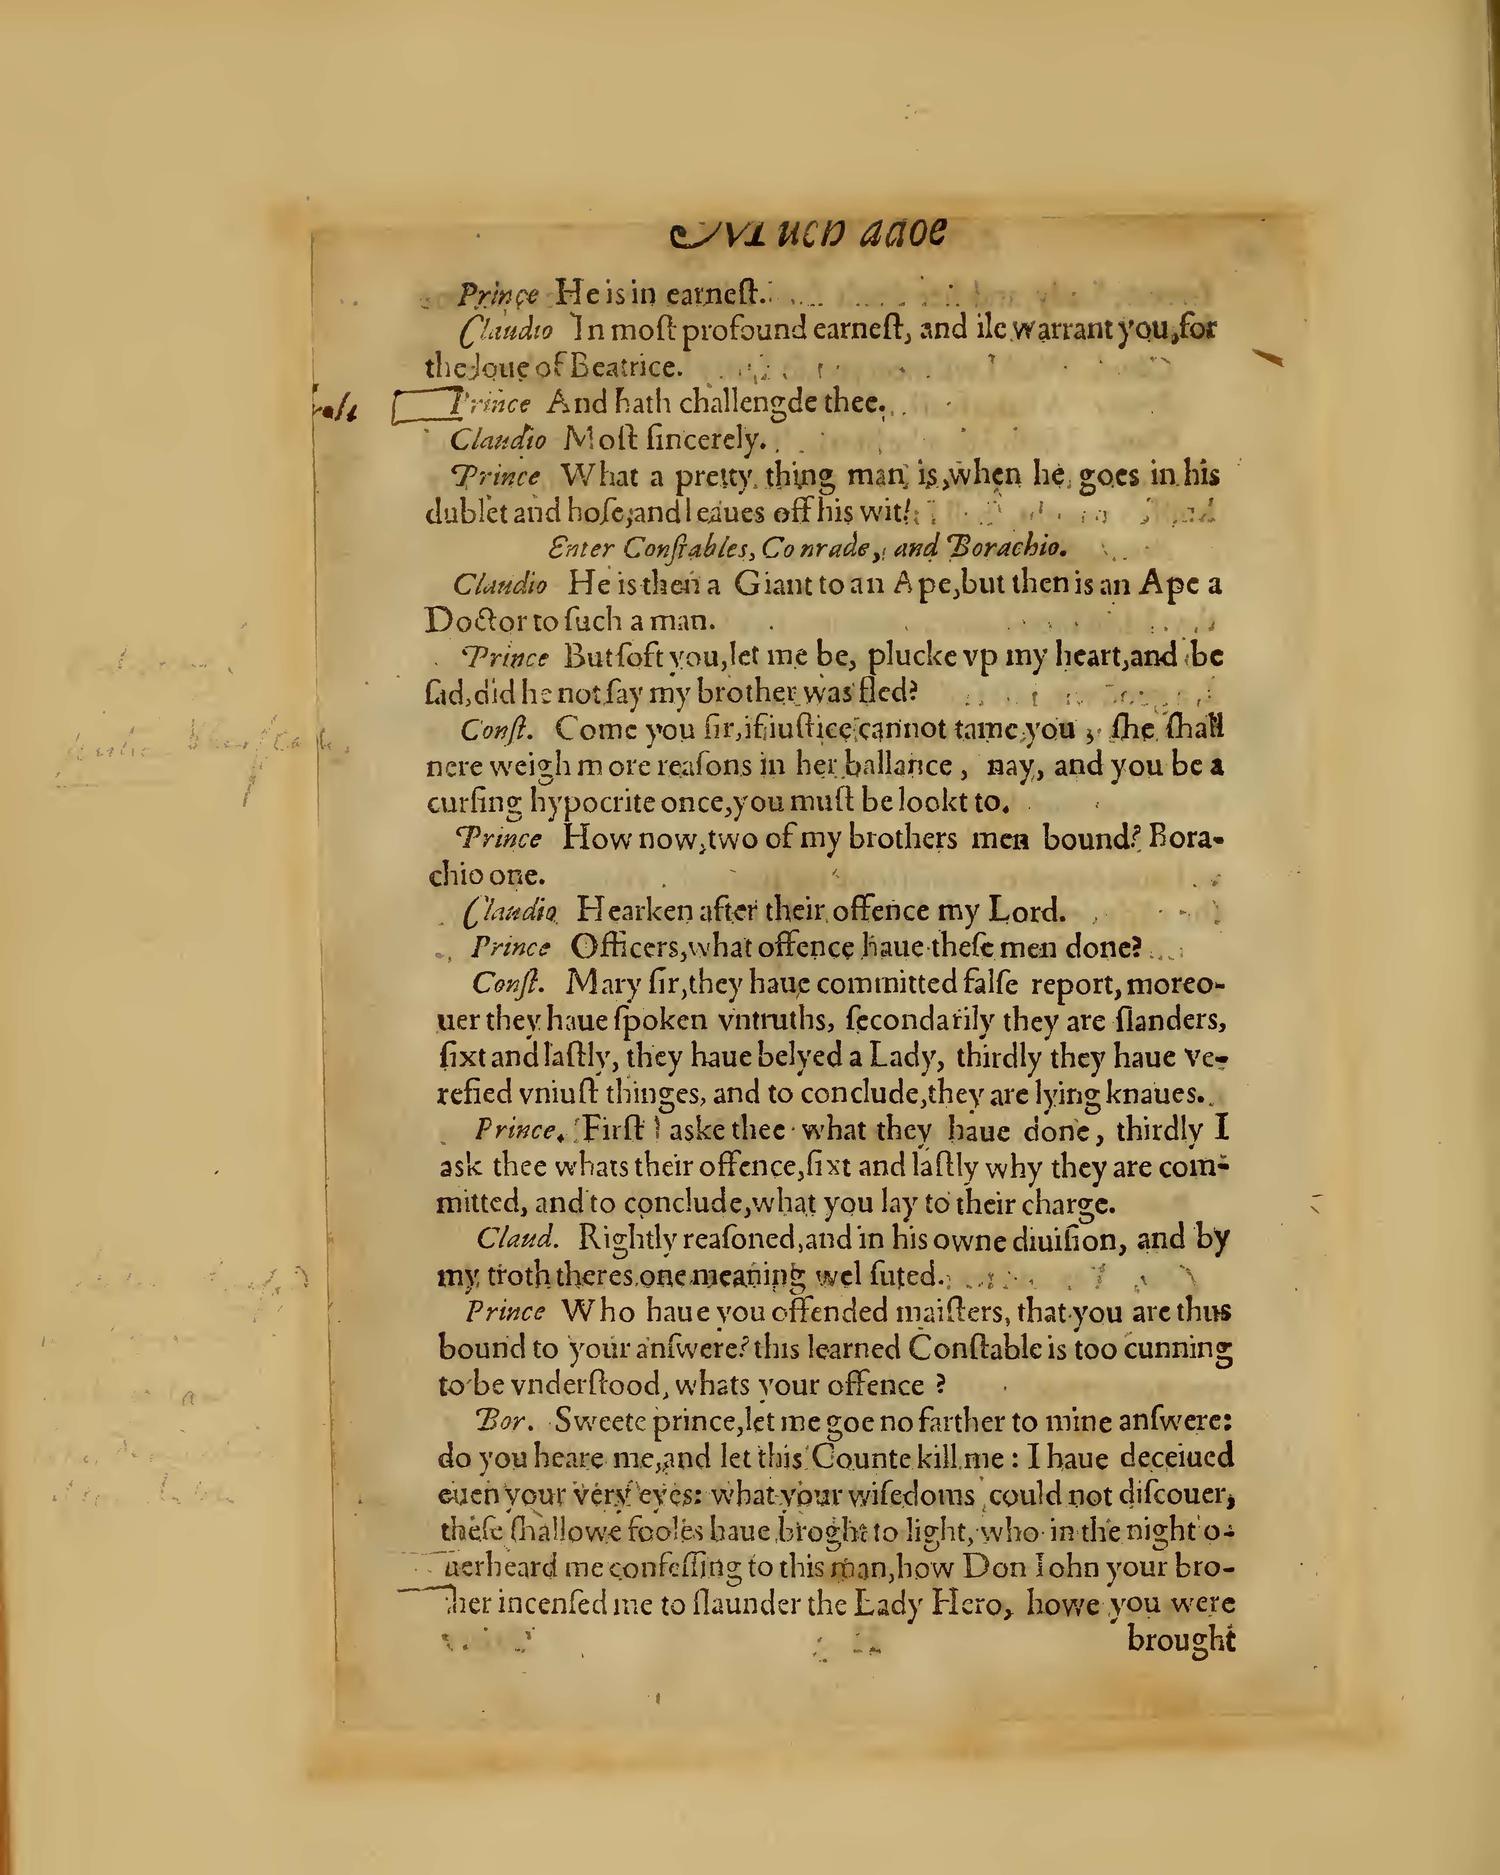 Prince He is in earneſt.
Claudio In moſt profound earneſt, and ile warrant you, for
the loue of Beatrice.
Prince And hath challengde thee.
Claudio Moſt ſincerely.
Prince What a pretty thing man is, when he goes in his
dublet and hoſe, and leaues off his wit!
Enter Conſtables, Conrade, and Borachio.
Claudio He is then a Giant to an Ape, but then is an Ape a
Doctor to ſuch a man.
Prince But ſoft you, let me be, plucke vp my heart, and be
ſad, did he not ſay my brother was fled?
Conſt. Come you ſir, if iuſtice cannot tame you, ſhe ſhall
nere weigh more reaſons in her ballance, nay, and you be a
curſing hypocrite once, you muſt be lookt to.
Prince How now, two of my brothers men bound? Bora-
chio one.
Claudio Hearken after their offence my Lord.
Prince Officers, what offence haue theſe men done?
Conſt. Mary ſir, they haue committed falſe report, moreo-
uer they haue ſpoken vntruths, ſecondarily they are ſlanders,
ſixt and laſtly, they haue belyed a Lady, thirdly they haue ve-
refied vniuſt thinges, and to conclude, they are lying knaues.
Prince. Firſt I aske thee what they haue done, thirdly I
ask thee whats their offence, ſixt and laſtly why they are com-
mitted, and to conclude, what you lay to their charge.
Claud. Rightly reaſoned, and in his owne diuiſion, and by
my troth theres one meaning wel ſuted.
Prince Who haue you offended maiſters, that you are thus
bound to your anſwere? this learned Conſtable is too cunning
to be vnderſtood, whats your offence ?
Bor. Sweete prince, let me goe no farther to mine anſwere:
do you heare me, and let this Counte kill me : I haue deceiued
euen your very eyes: what your wiſedoms could not diſcouer,
theſe ſhallowe fooles haue broght to light, who in the night o-
uerheard me confeſſing to this man, how Don Iohn your bro-
ther incenſed me to ſlaunder the Lady Hero, howe you were
brought